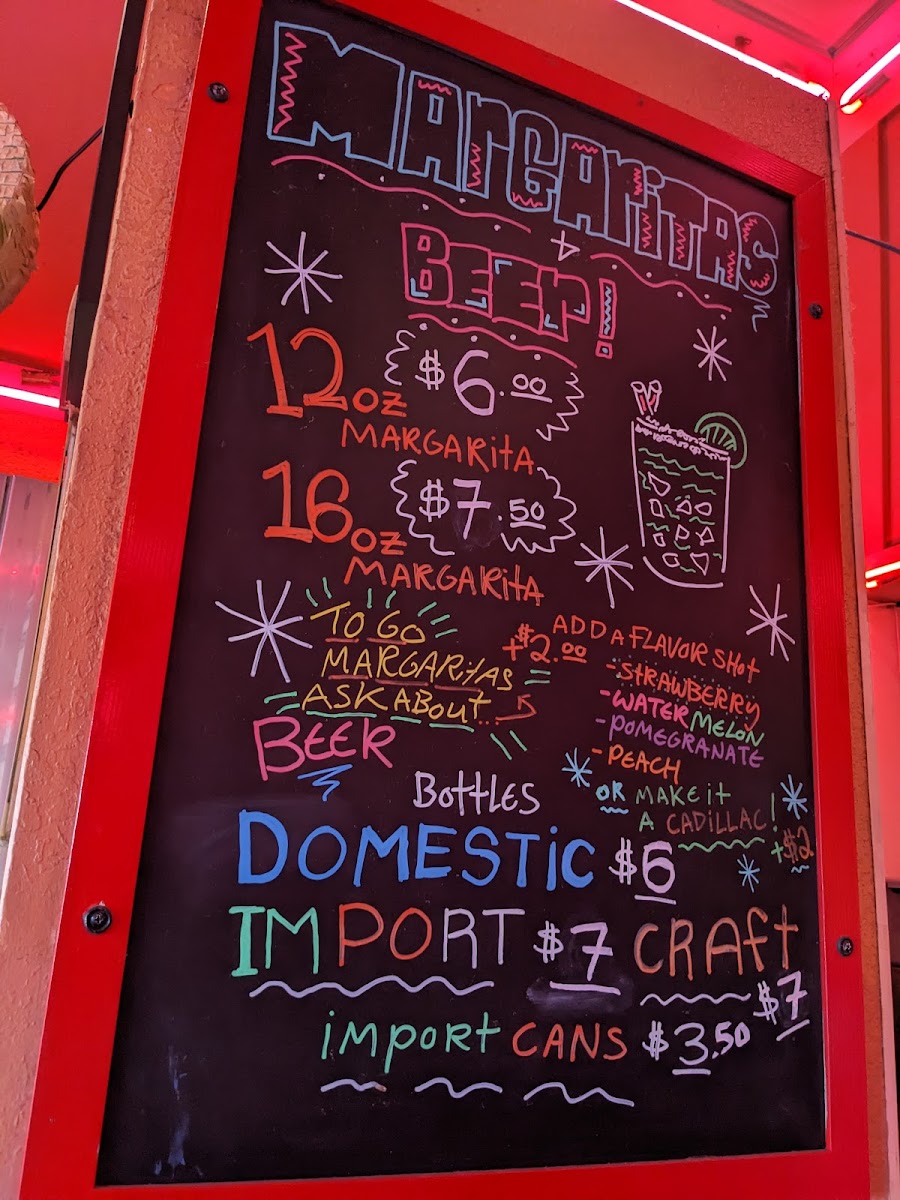 MArGAriTAS
& BEEr!
12oz $6.00
MARGARitA
16oz $7.50
MARGARitA
TO GO
MARGARitAS
ASK ABOUT
+$2.00 ADD A FLAVOR SHOt
- STRAWBERRY
- WATERMELON
- POMEGRANATE
- PEACH
OR MAKE it
A CADILLAC!
+$2
BEER
BottLES
DOMESTiC $6
IMPORT $7 CRAft
$7
import CANS $3.50